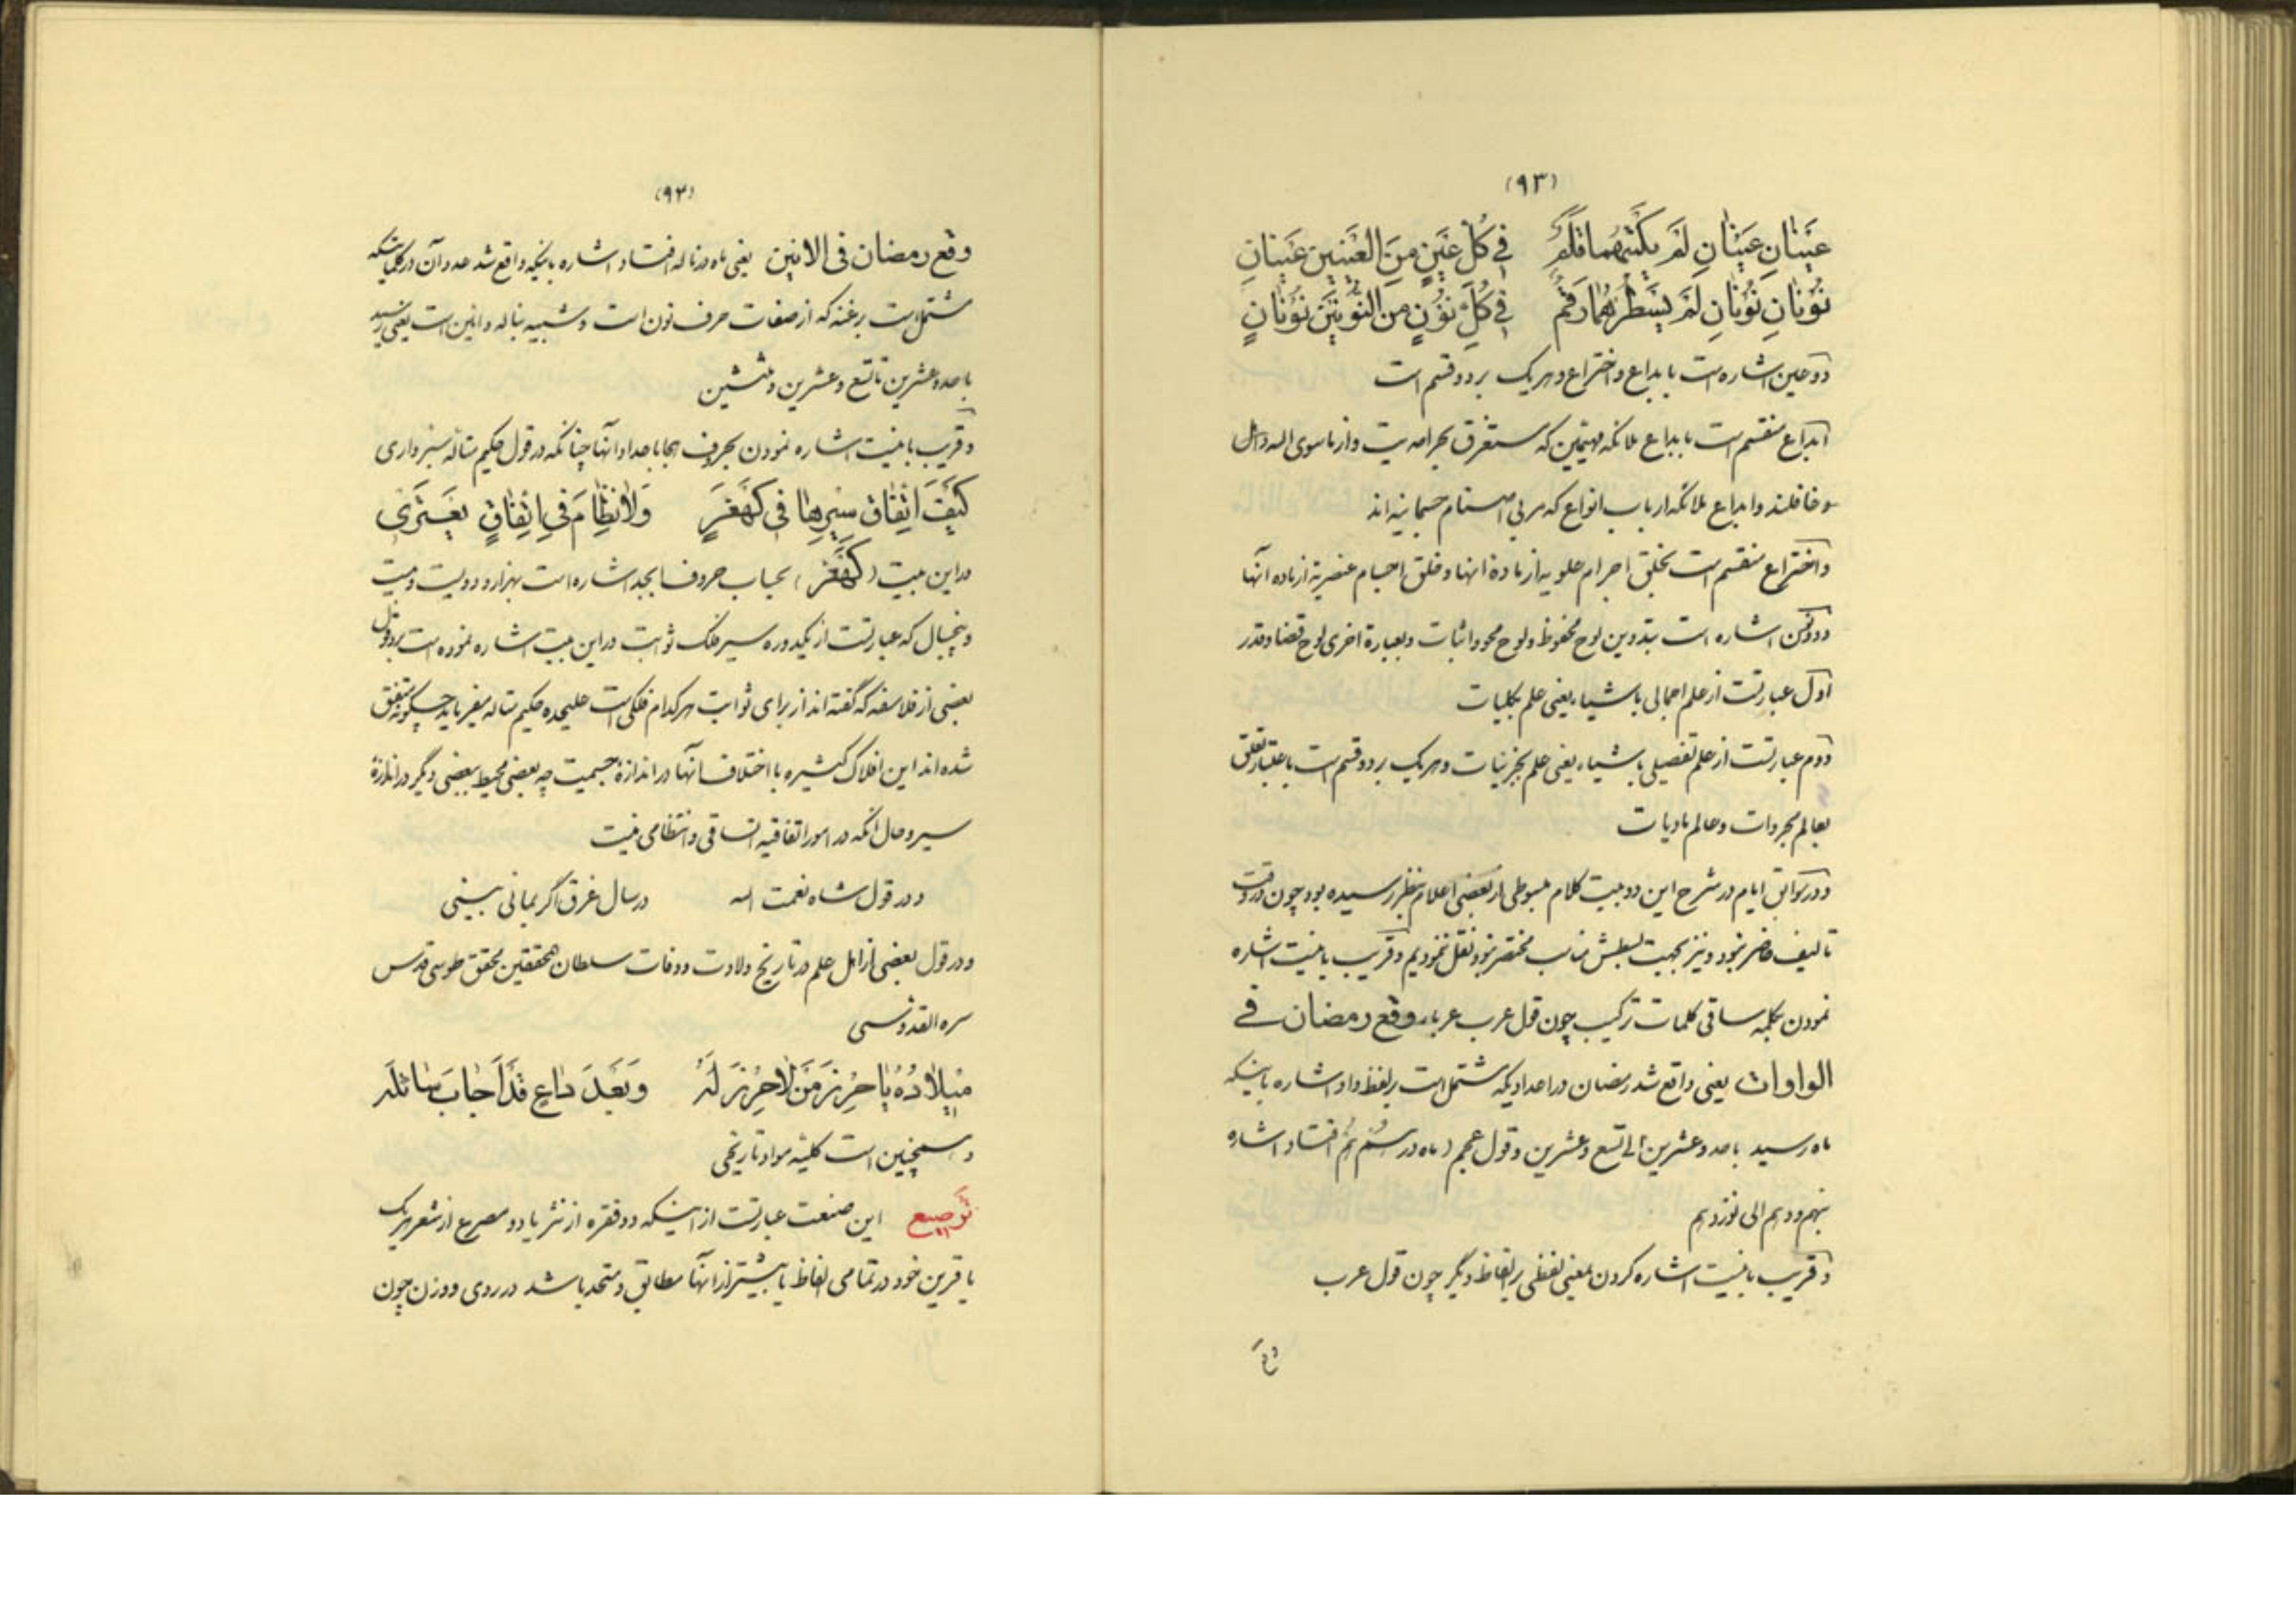 (۹۳)
عَيْنانِ عَيْنانِ لَمْ يَكْتُبْهُما قَلَمٌ في كُلِّ عَيْنٍ مِنَ العَيْنَيْنِ عَيْنانِ
نُونانِ نُونانِ لَمْ يَسْطُرْهُما رَقَمٌ في كُلِّ نُونٍ مِنَ النُّونَيْنِ نُونانِ
دو عین اشاره است بابداع و اختراع و هریک بر دو قسم است
ابداع منقسم است بابداع ملائکه مهیمین که مستغرق بحر احدیت و از ماسوی الله ذاهل
و غافلند و ابداع ملائکه ارباب انواع که مربی اصنام جسمانیه اند
و اختراع منقسم است بخلق اجرام علویه از ماده انها و خلق اجسام عنصریه از ماده آنها
و دو نون اشاره است بتدوین لوح محفوظ و لوح محو و اثبات و بعبارة اخری لوح قضا و قدر
اول عبارتست از علم اجمالی باشیاء یعنی علم بکلیات
دوم عبارتست از علم تفصیلی باشیاء یعنی علم بجزئیات و هریک بر دو قسم است باعتبار تعلق
بعالم مجردات و عالم مادیات
و در سوابق ایام در شرح این دو بیت کلام مبسوطی از بعضی اعلام بنظر رسیده بود چون در وقت
تالیف حاضر نبود و نیز بجهت بسطش مناسب مختصر نبود نقل ننمودیم و قریب باینست اشاره
نمودن بکلمه ساقی کلمات ترکیب چون قول عرب عرباء وقع رمضان في
الواوات یعنی واقع شد رمضان در اعدادیکه مشتمل است بر لفظ واو اشاره باینکه
ماه رسید باحد و عشرین الی تسع و عشرین و قول عجم (ماه در هم افتاد) اشاره
بنهم و دهم الی نوزدهم
و قریب باینست اشاره کردن بمعنی لفظی بر الفاظ دیگر چون قول عرب
وقع
(۹۴)
وقع رمضان فی الانین یعنی ماه در ناله افتاد اشاره باینکه واقع شد عدد آن در کلماتیکه
مشتمل است بر غنه که از صفات حرف نون است و شبیه بناله و انین است یعنی رسید
باحد و عشرین تا تسع و عشرین و ثلثین
و قریب باینست اشاره نمودن بحروف هجا باعداد انها چنانکه در قول حکیم متاله سبزواری
كَيْفَ اتِّفاقُ سَيْرِها في كَهْغَرَ وَلا نِظامَ في اتِّفاقٍ يَعْتَري
در این بیت (کهغر) بحساب حروف ابجد اشاره است بهزار و دویست و بیست
و پنجسال که عبارتست از یکدوره سیر فلک ثوابت در این بیت اشاره نموده است برد قول
بعضی از فلاسفه که گفته اند از برای ثوابت هرکدام فلکی است علیحده حکیم متاله میفرماید چگونه متفق
شده اند این افلاک کثیره با اختلاف آنها در اندازۀ جسمیت چه بعضی محیط ببعضی دیگر در اندازۀ
سیر و حال آنکه در امور اتفاقیه اتساقی و انتظامی نیست
و در قول شاه نعمت الله در سال غرق اگر بمانی بینی
و در قول بعضی از اهل علم در تاریخ ولادت و وفات سلطان المحققین محقق طوسی قدس
سره القدوسی
مِيلادُهُ يا حِرْزَ مَنْ لا حِرْزَ لَهُ وَبَعْدَ داعٍ قَدْ أَجابَ سائِلَهُ
و همچنین است کلیه مواد تاریخی
تَرصیع این صنعت عبارتست از اینکه دو فقره از نثر یا دو مصرع از شعر هریک
با قرین خود در تمامی الفاظ یا بیشتر از انها مطابق و متحد باشد در روی و وزن چون